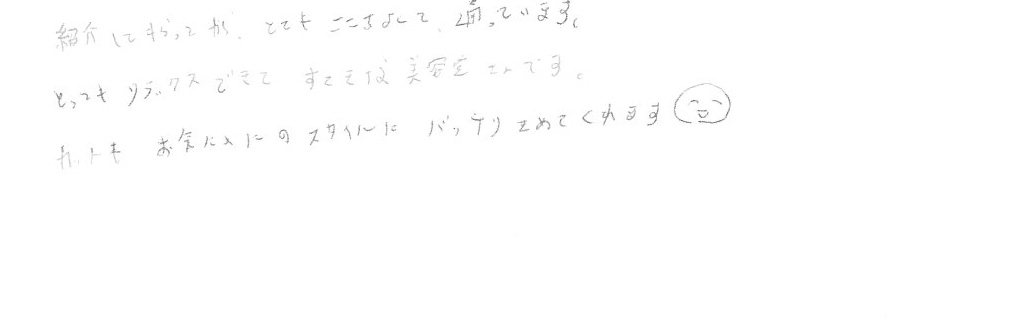 紹介してもらってが、とてもここちよくて、通っています。
とってもリラックスできて すてきな美容室さんです。
カットも お気に入にのスタイルに バッチリきめてくれます